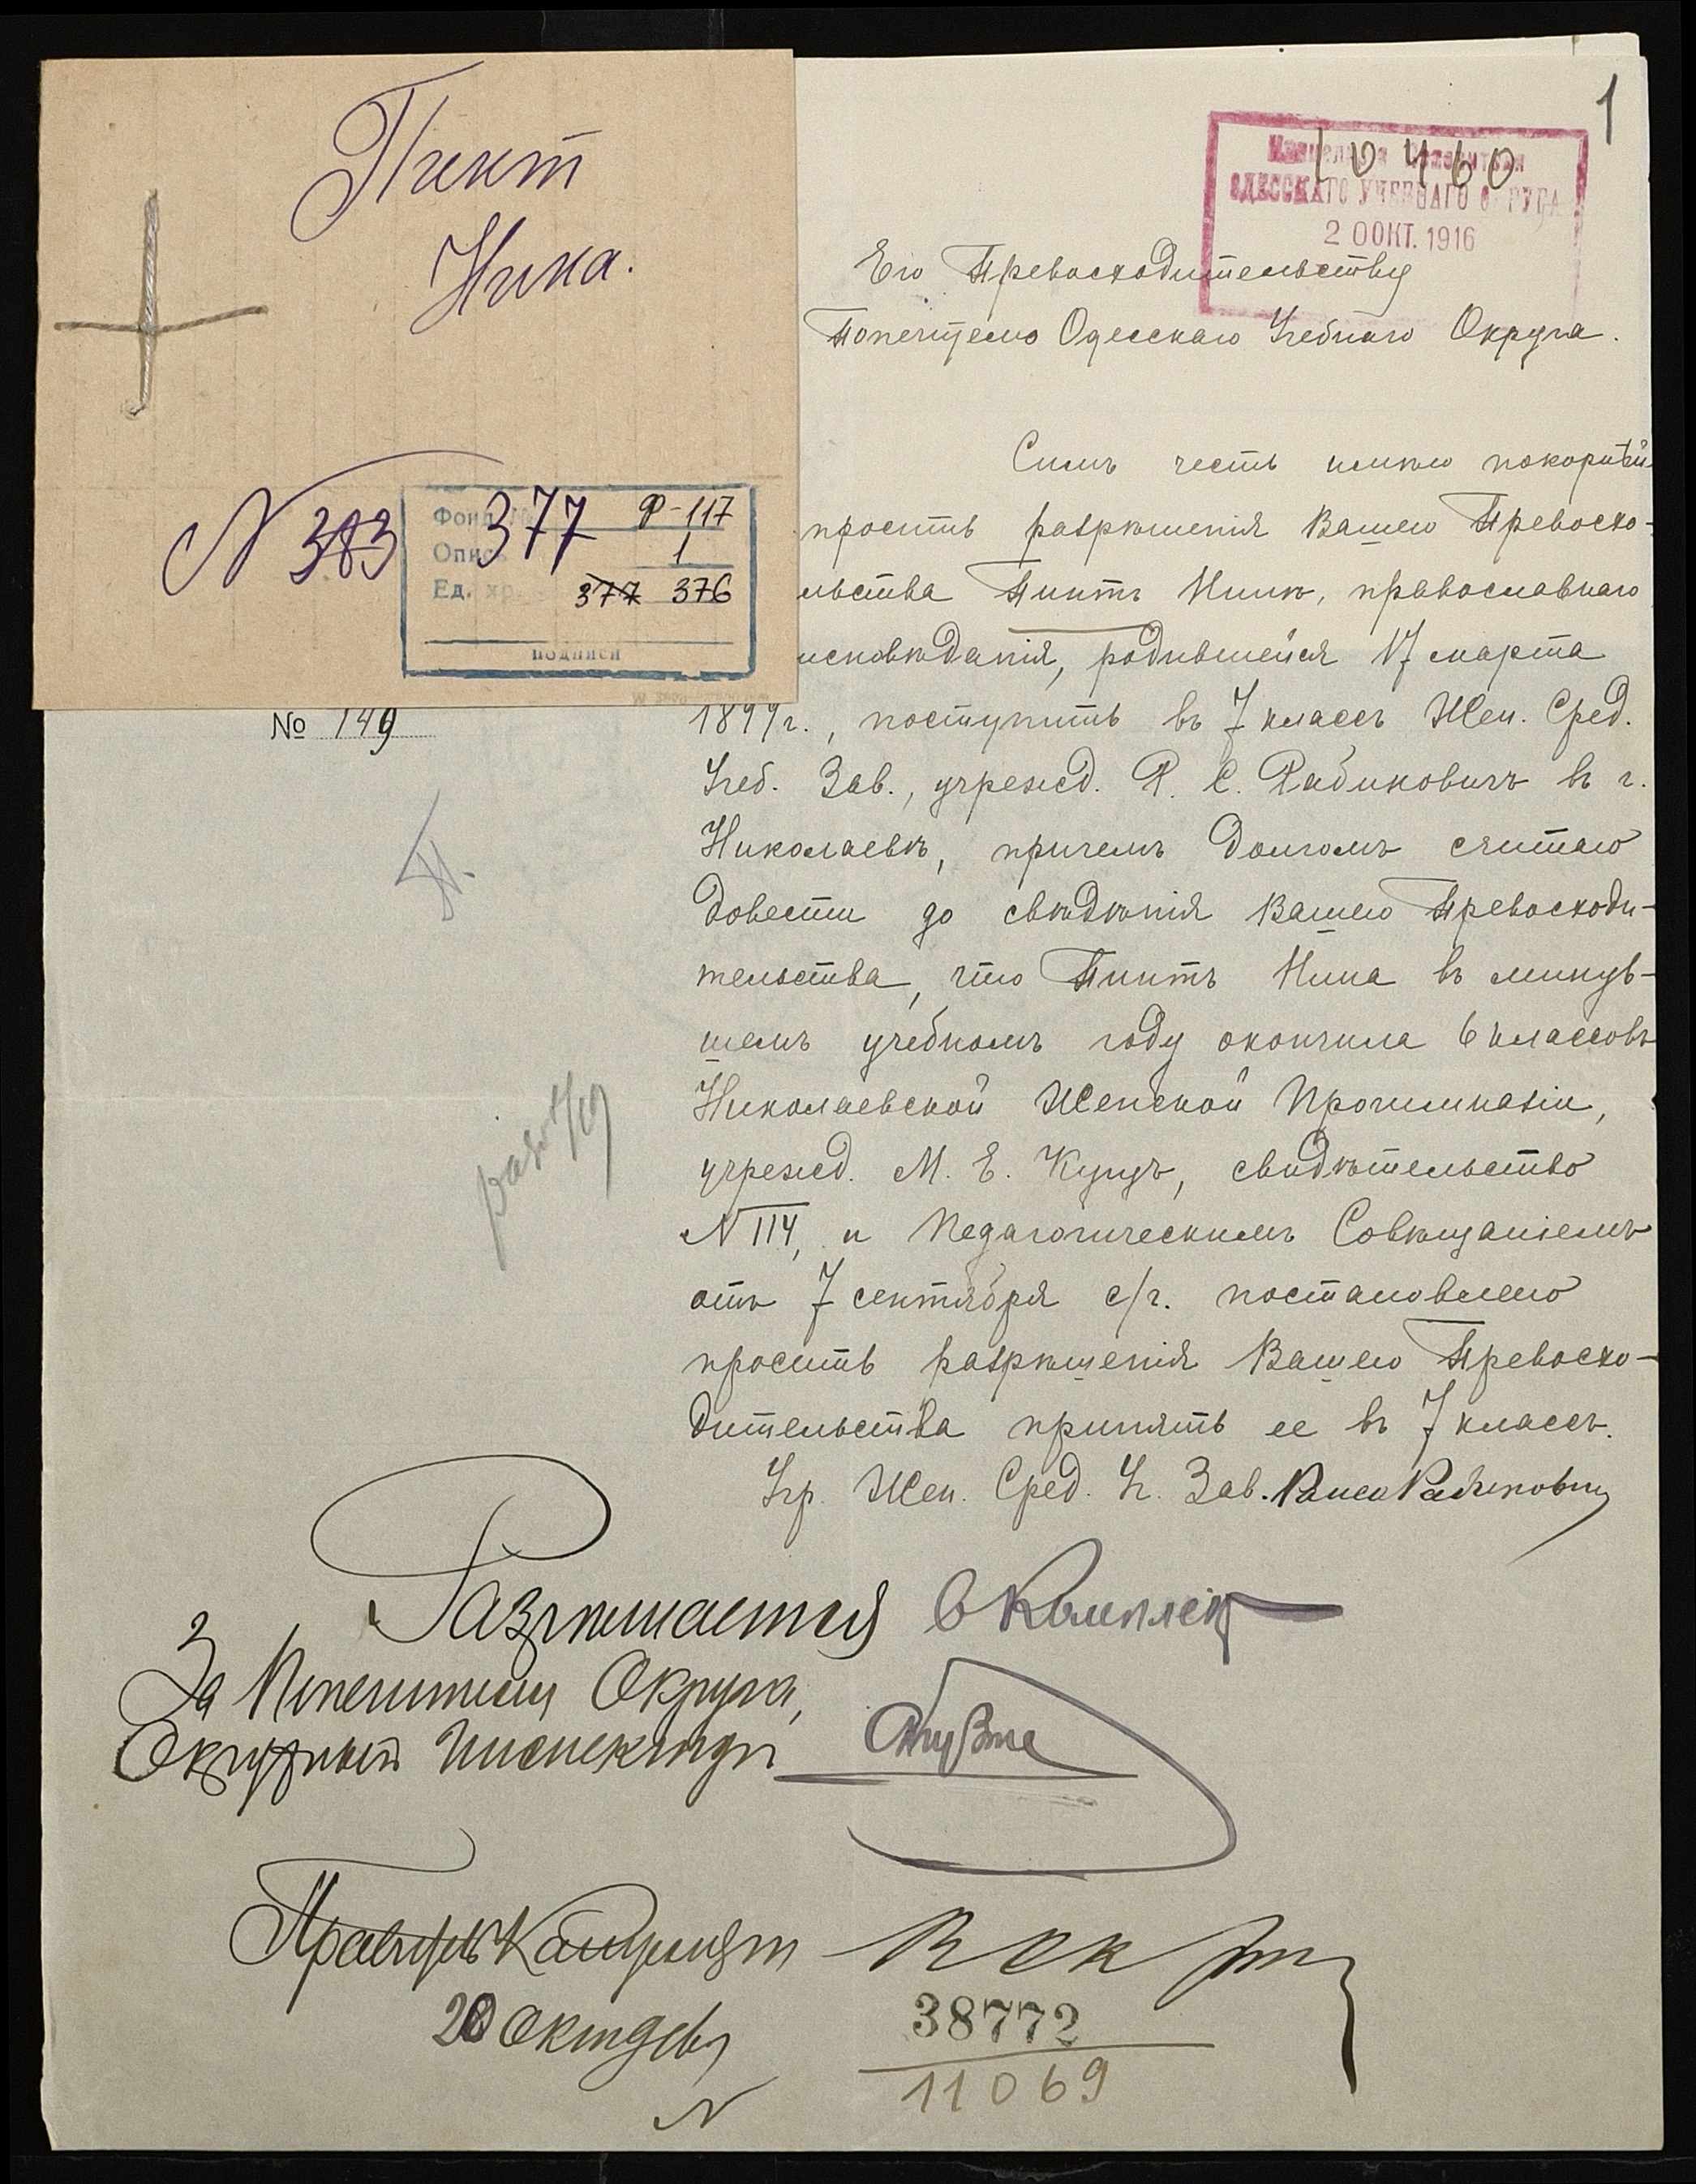 Пинт
Нина.
N 383
Фонд 377 Ф-117
Опис 1
Ед. хр. 377 376
подписи
1
10460
Канцелярія Попечителя
ОДЕССКАГО УЧЕБНАГО ОКРУГА
20 ОКТ. 1916
Его Превосходительству
Попечителю Одесскаго Учебнаго Округа.
Симъ честь имѣю покорнѣй
просить разрѣшенія Вашего Превосхо-
льства Пинтъ Нинѣ, православнаго
исповѣданія, родившейся 17 марта
№ 149
1899 г., поступить въ 7 классъ Жен. Сред.
Учеб. Зав., учрежд. Р. С. Рабиновичъ въ г.
Николаевѣ, причемъ долгомъ считаю
довести до свѣдѣнія Вашего Превосходи-
тельства, что Пинтъ Нина въ минув-
шемъ учебномъ году окончила 6 классовъ
Николаевской Женской Прогимназіи,
учрежд. М. Е. Кунцъ, свидѣтельство
N 114, и Педагогическимъ Совѣщаніемъ
отъ 7 сентября с/г. постановлено
просить разрѣшенія Вашего Превосхо-
дительства принять ее въ 7 классъ.
Учр. Жен. Сред. У. Зав. Раиса Рабиновичъ
Разрѣшается въ комплектъ
За Попечителя Округа,
Окружный Инспекторъ
Правитель Канцеляріи
20 Октября
38772
N 11069